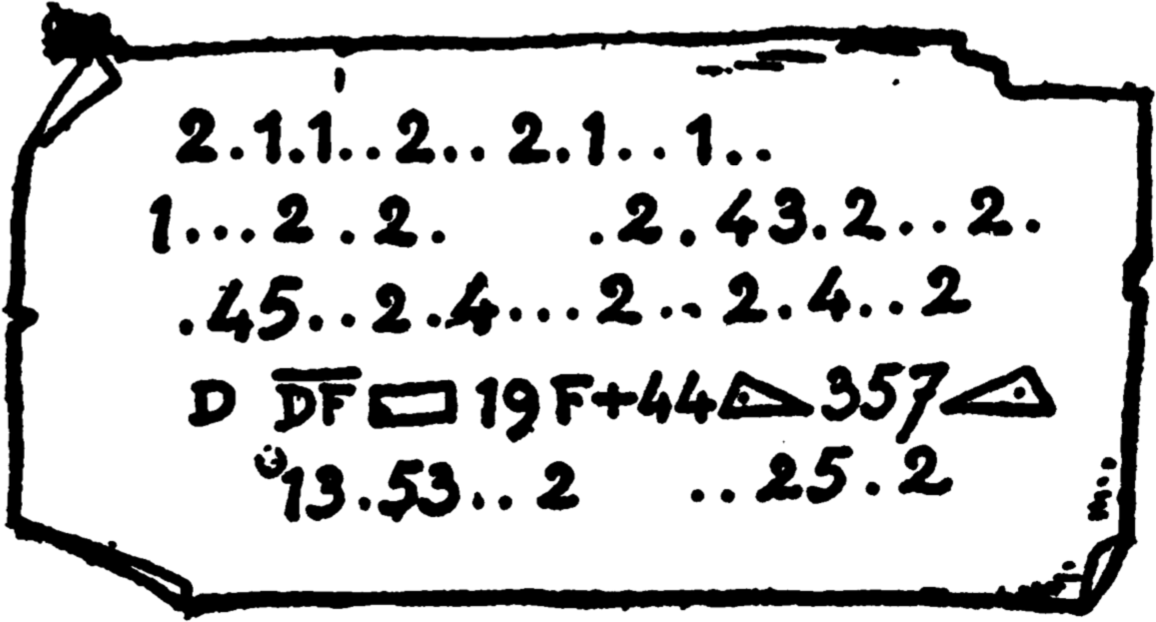 2.1.1..2..2.1..1..
1...2.2. .2.43.2..2.
.45..2.4...2..2.4..2
D D̅F̅ ▭ 19F+44◺357◿
13.53..2 ..25.2